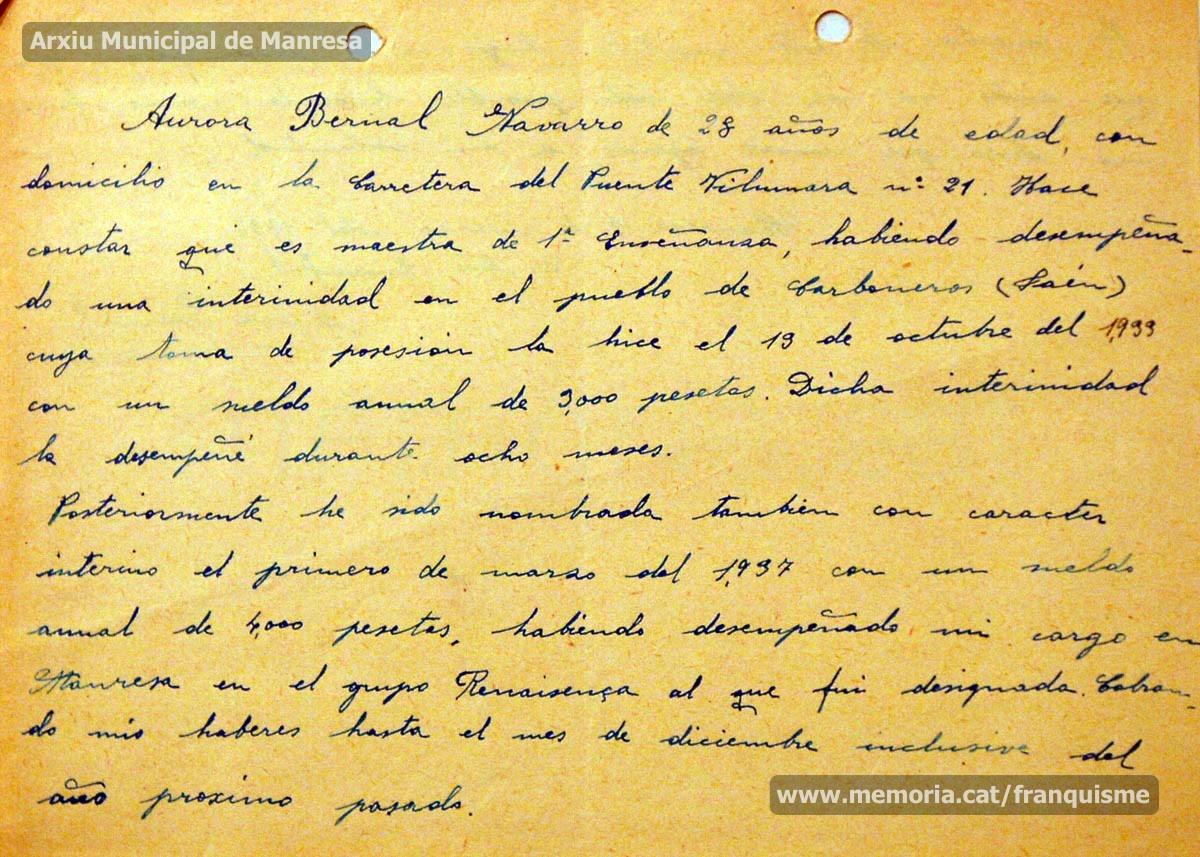 Arxiu Municipal de Manresa
Aurora Bernal Navarro de 28 años de edad, con
domicilio en la Carretera del Puente Vilumara nº 21. Hace
constar que es maestra de 1ª Enseñanza, habiendo desempeña-
do una interinidad en el pueblo de Carboneros (Jaén)
cuya toma de posesion la hice el 13 de octubre del 1,933
con un sueldo anual de 3,000 pesetas. Dicha interinidad
la desempeñé durante ocho meses.
Posteriormente he sido nombrada tambien con caracter
interino el primero de marzo del 1,937 con un sueldo
anual de 4,000 pesetas, habiendo desempeñado mi cargo en
Manresa en el grupo Renaisença al que fui designada. Cobran-
do mis haberes hasta el mes de diciembre inclusive del
año proximo pasado.
www.memoria.cat/franquisme